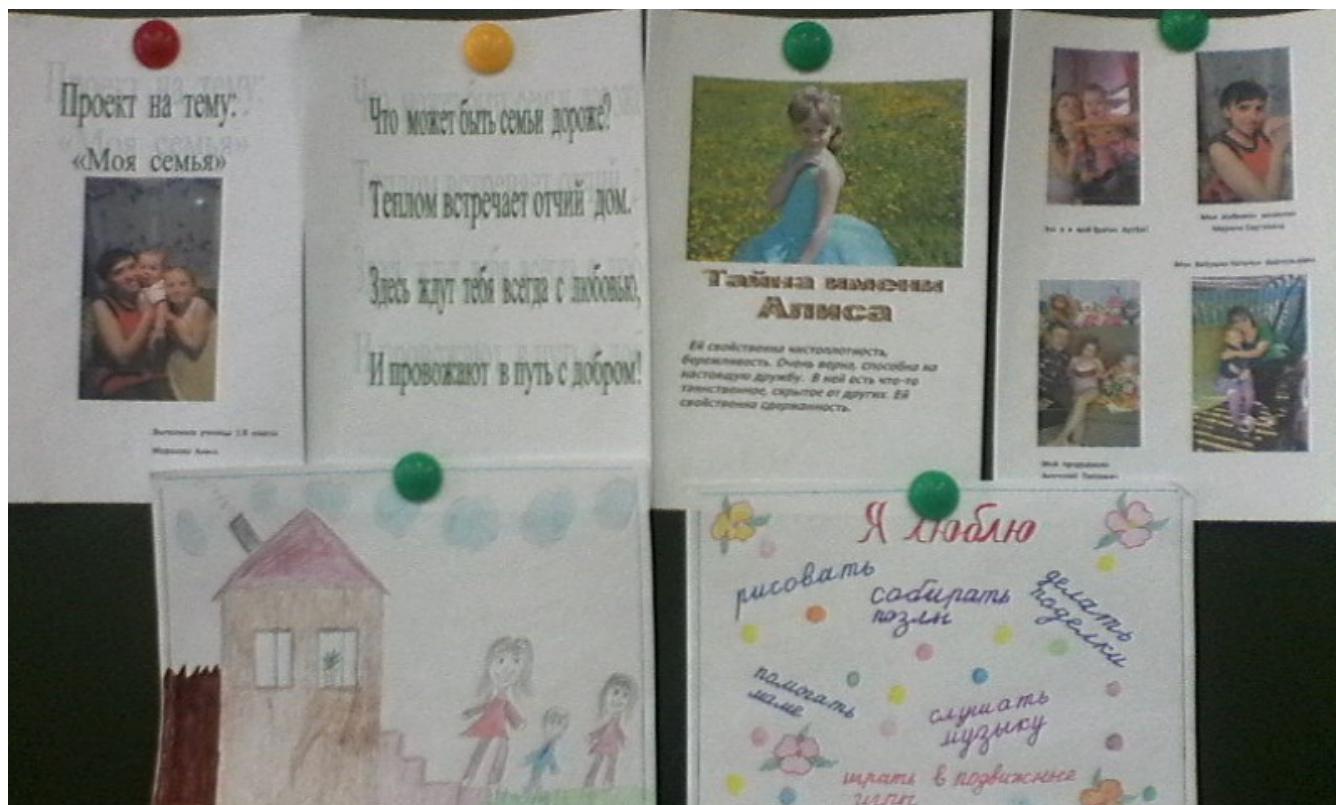 Проект на тему:
«Моя семья»
Выполнила ученица 1 В класса
Что может быть семьи дороже?
Теплом встречает отчий дом.
Здесь ждут тебя всегда с любовью,
И провожают в путь с добром!
Тайна имени
Алиса
Ей свойственна чистоплотность,
бережливость. Очень верна, способна на
настоящую дружбу. В ней есть что-то
таинственное, скрытое от других. Ей
свойственна сдержанность.
Это я и мой братик Артём!
Моя любимая мамочка
Марина Сергеевна
Моя бабушка Наталья Анатольевна
Мой прадедушка
Я люблю
рисовать
собирать
пазлы
делать
поделки
помогать
маме
слушать
музыку
играть в подвижные
игры